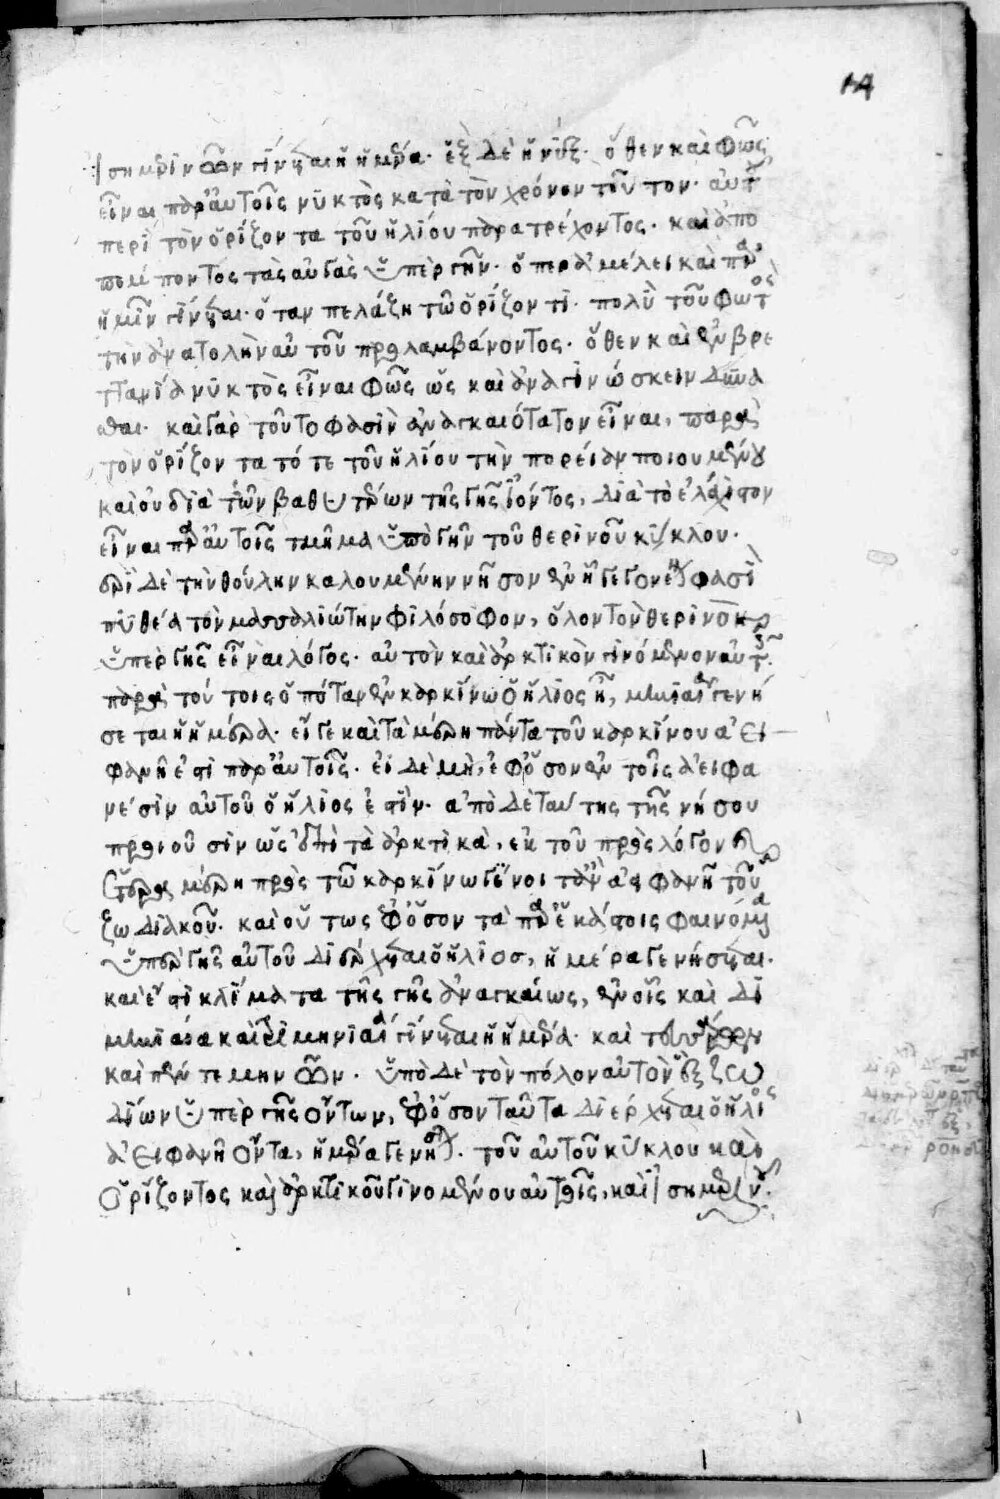 14
ἰσημερινῶν γίνεται ἡ ἡμέρα. ἓξ δὲ ἡ νύξ. ὅθεν καὶ φῶς
εἶναι παρ' αὐτοῖς νυκτὸς κατὰ τὸν χρόνον τοῦτον. αὐτοῦ
περὶ τὸν ὁρίζοντα τοῦ ἡλίου παρατρέχοντος. καὶ ἀπο
πέμποντος τὰς αὐγὰς ὑπὲρ γῆν. ὅπερ ἀμέλει καὶ παρ'
ἡμῖν γίνεται. ὅταν πελάζῃ τῷ ὁρίζοντι. πολὺ τοῦ φωτὸς
τὴν ἀνατολὴν αὐτοῦ προλαμβάνοντος. ὅθεν καὶ ἐν βρε
ττανίᾳ νυκτὸς εἶναι φῶς ὡς καὶ ἀναγινώσκειν δύνα
σθαι. καὶ γὰρ τοῦτο φασὶν ἀναγκαιότατον εἶναι, παρὰ
τὸν ὁρίζοντα τότε τοῦ ἡλίου τὴν πορείαν ποιουμένου
καὶ οὐ διὰ τῶν βαθυτέρων τῆς γῆς ἰόντος, διὰ τὸ ἐλάχιστον
εἶναι παρ' αὐτοῖς τμῆμα ὑπὸ γῆν τοῦ θερινοῦ κύκλου.
περὶ δὲ τὴν θούλην καλουμένην νῆσον ἐν ᾗ γεγονέναι φασὶ
πυθέα τὸν μασσαλιώτην φιλόσοφον, ὅλον τὸν θερινὸν
ὑπὲρ γῆς εἶναι λόγος. αὐτὸν καὶ ἀρκτικὸν γινόμενον αὐτοῖς.
παρὰ τούτοις ὁπόταν ἐν καρκίνῳ ὁ ἥλιος ᾖ, μηνιαία γενή
σεται ἡ ἡμέρα. εἴγε καὶ τὰ μέρη πάντα τοῦ καρκίνου ἀει
φανῆ ἐστι παρ' αὐτοῖς. εἰ δὲ μὴ, ἐφ' ὅσον ἐν τοῖς ἀειφα
νέσιν αὐτοῦ ὁ ἥλιός ἐστιν. ἀπὸ δὲ ταύτης τῆς νήσου
προιοῦσιν ὡς ἐπὶ τὰ ἀρκτικὰ, ἐκ τοῦ πρὸς λόγον καὶ
ἕτερα μέρη πρὸς τῷ καρκίνῳ γένοιτ' ἂν ἀειφανῆ τοῦ
ζωδιακοῦ. καὶ οὕτως ἐφ' ὅσον τὰ παρ' ἑκάστοις φαινόμενα
ὑπὲρ γῆς αὐτοῦ διέρχεται ὁ ἥλιος, ἡμέρα γενήσεται.
καὶ ἔστι κλίματα τῆς γῆς ἀναγκαίως, ἐν οἷς καὶ δι
μηνιαία καὶ τριμηνιαία γίνεται ἡ ἡμέρα. καὶ τεσσάρων
καὶ πέντε μηνῶν. ὑπὸ δὲ τὸν πόλον αὐτὸν ἓξ ζω
δίων ὑπὲρ γῆς ὄντων, ἐφ' ὅσον ταῦτα διέρχεται ὁ ἥλιος
ἀειφανῆ ὄντα, ἡμέρα γενήσεται. τοῦ αὐτοῦ κύκλου καὶ
ὁρίζοντος καὶ ἀρκτικοῦ γινομένου αὐτοῖς, καὶ ἰσημερινοῦ.